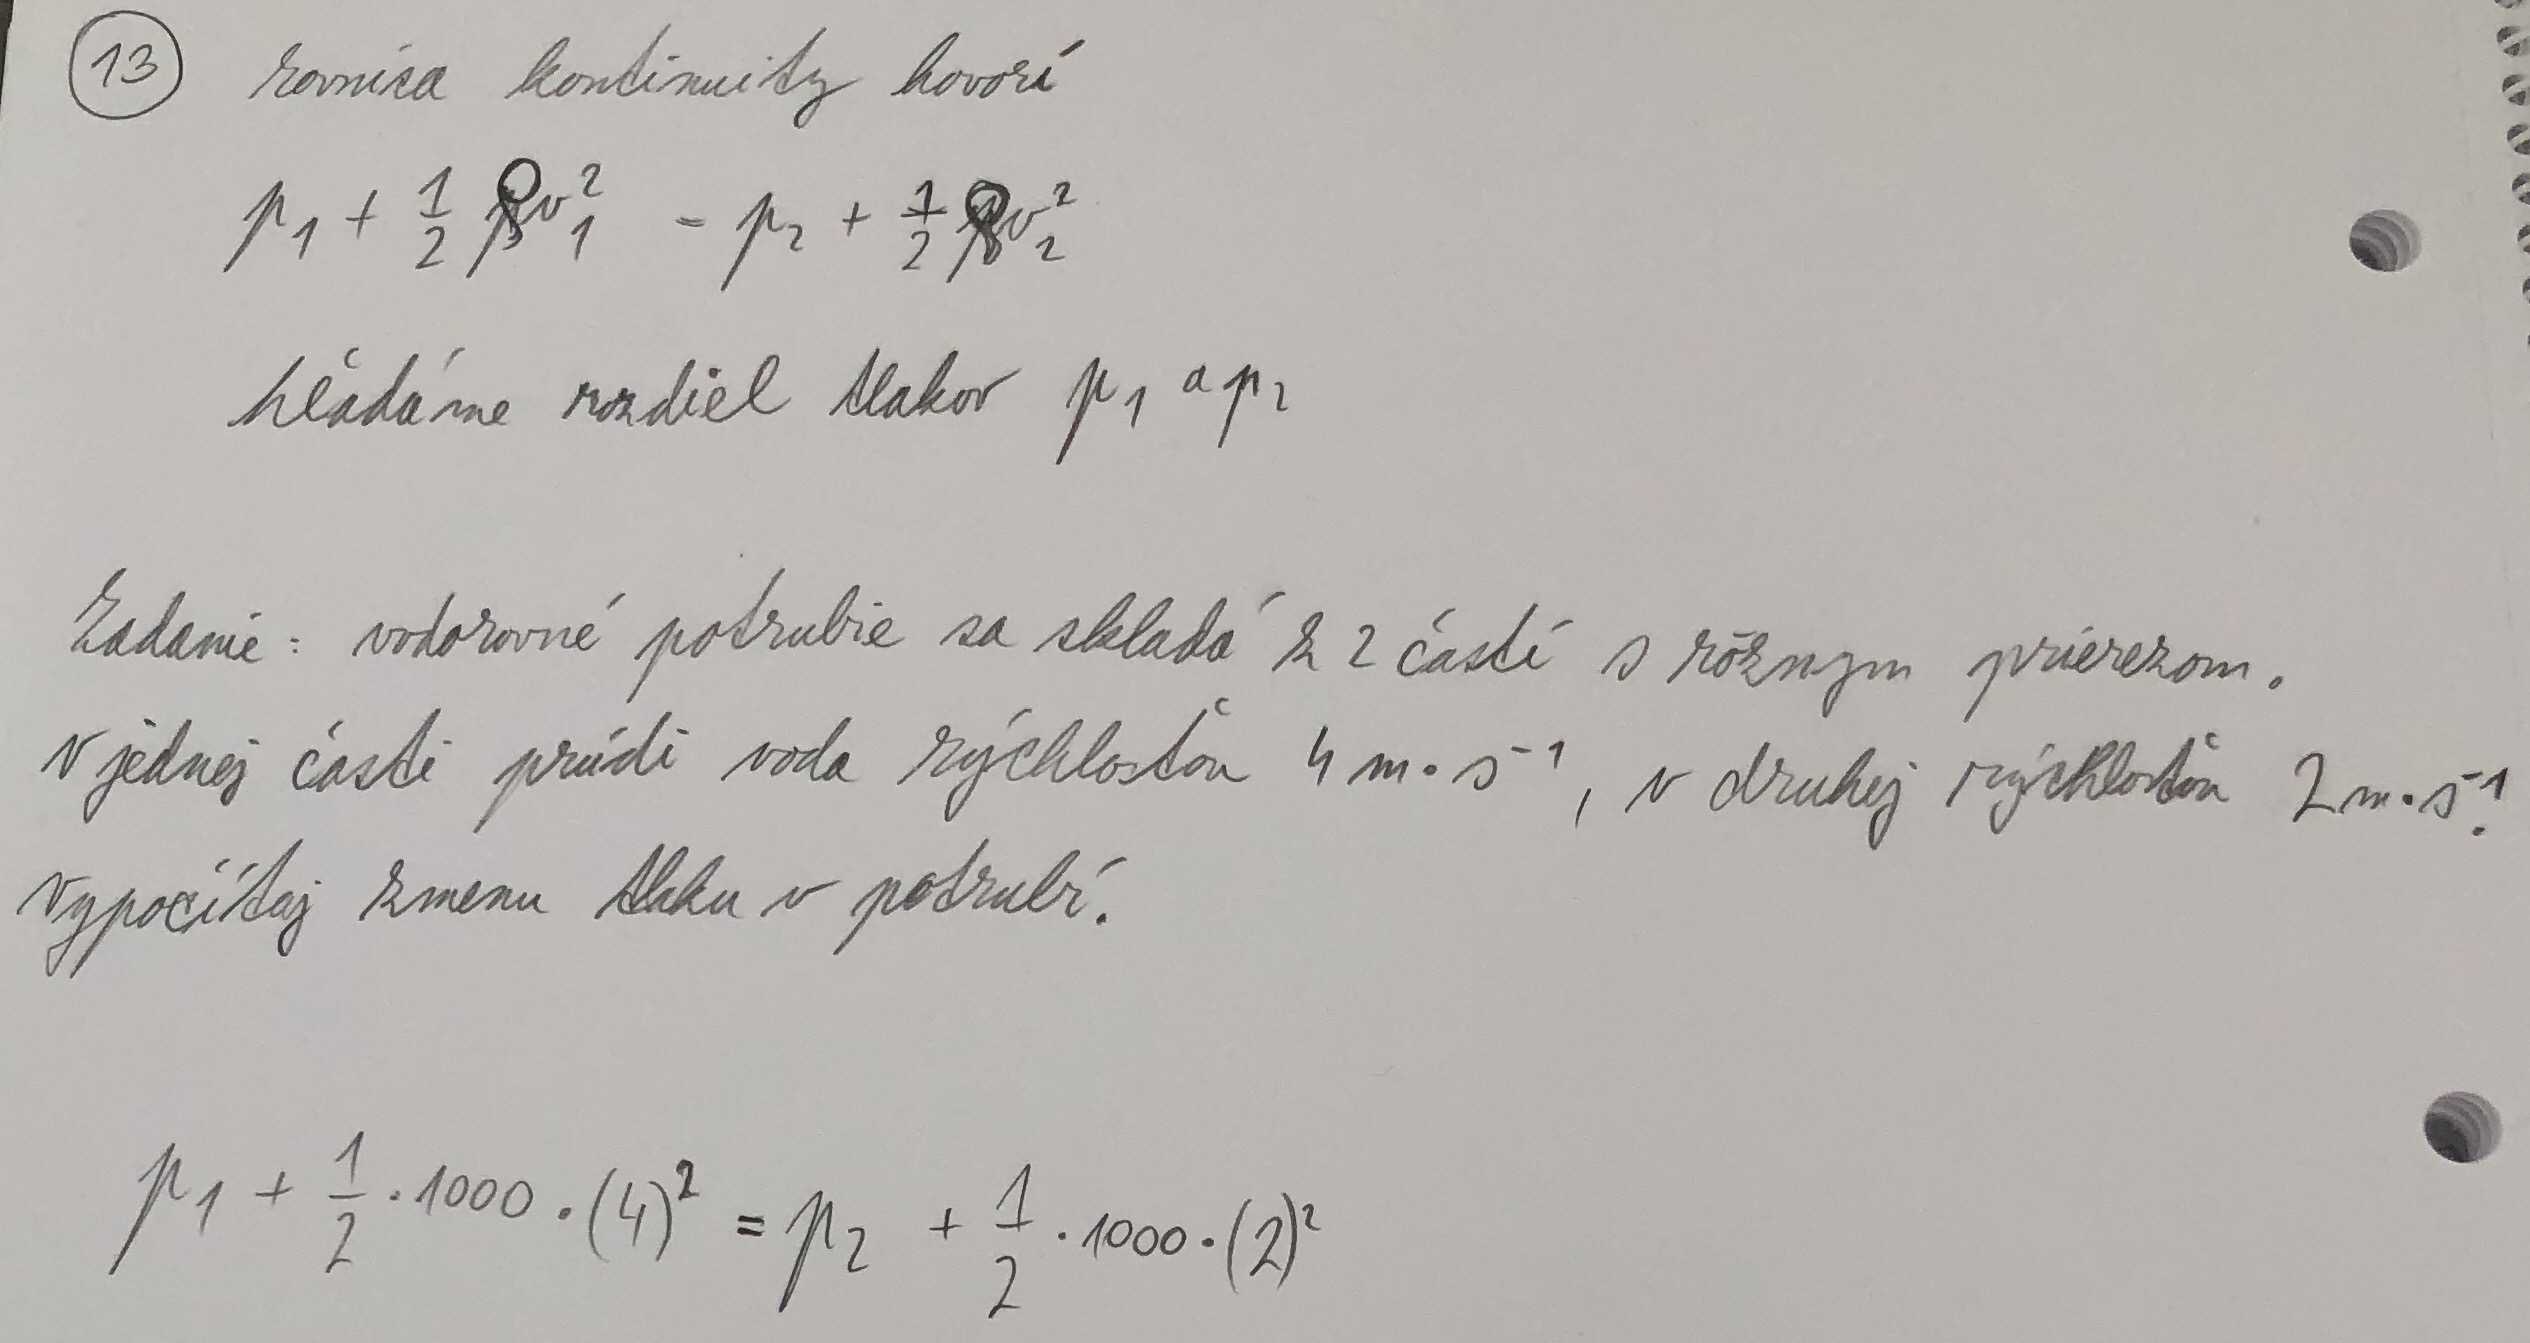 13 rovnica kontinuity hovorí
p₁ + 1/2 ρv₁² = p₂ + 1/2 ρv₂²
hľadáme rozdiel tlakov p₁ a p₂
Zadanie: vodorovné potrubie sa skladá z 2 častí s rôznym prierezom.
V jednej časti prúdi voda rýchlosťou 4 m·s⁻¹, v druhej rýchlosťou 2 m·s⁻¹.
Vypočítaj zmenu tlaku v potrubí.
p₁ + 1/2 · 1000 · (4)² = p₂ + 1/2 · 1000 · (2)²